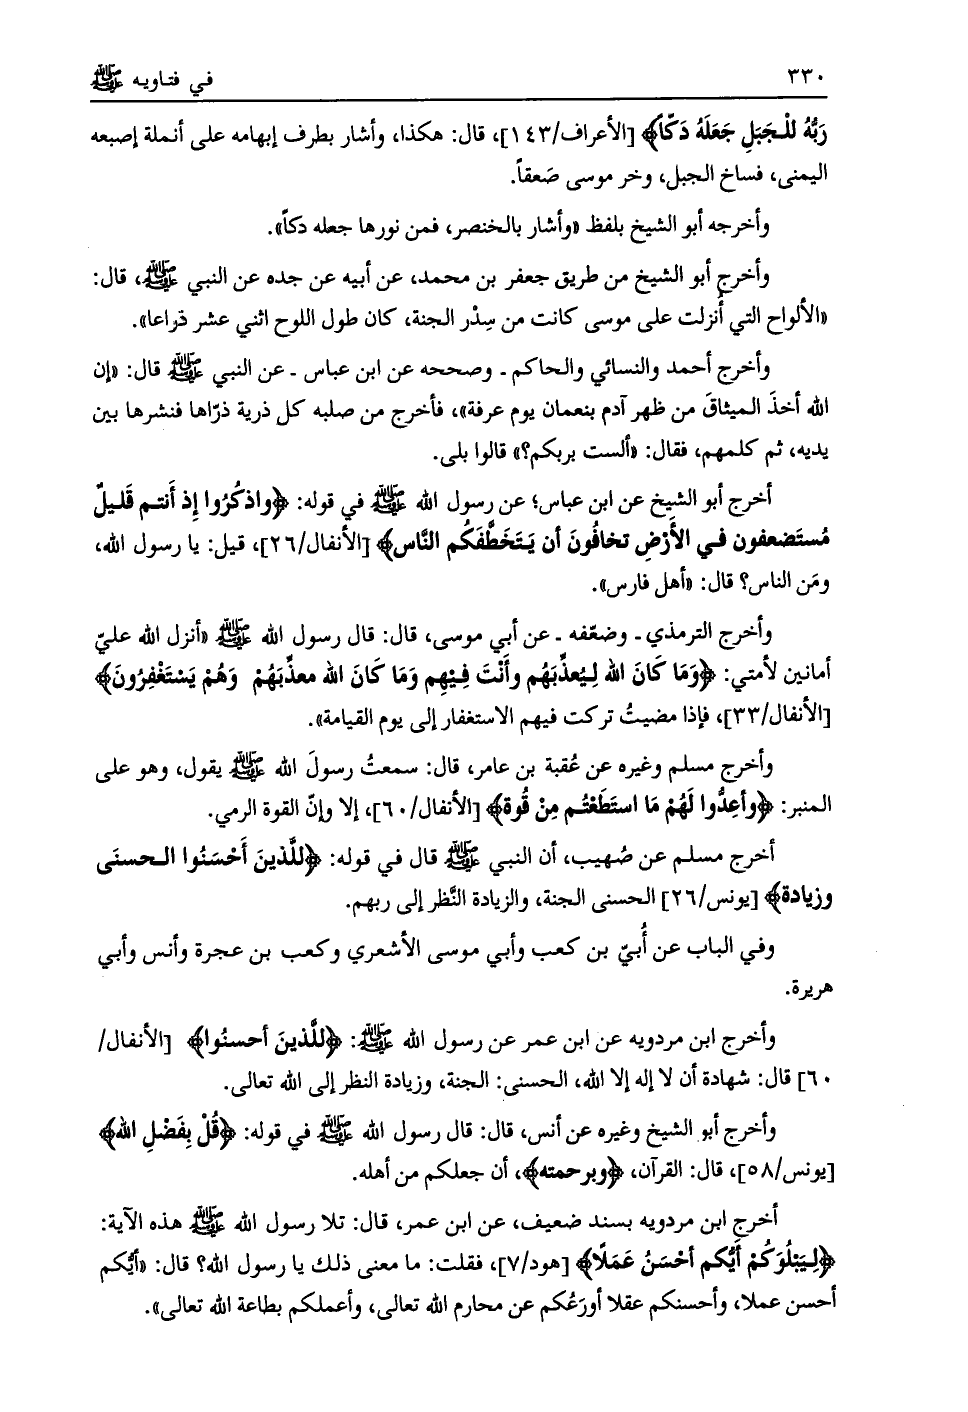 ٣٣٠
في فتاويه ﷺ
رَبُّهُ للْـجَبَلِ جَعَلَهُ دَكّاً﴾ [الأعراف/١٤٣]، قال: هكذا، وأشار بطرف إبهامه على أنملة إصبعه
اليمنى، فساخ الـجبل، وخر موسى صَعقاً.
وأخرجه أبو الشيخ بلفظ «وأشار بالخنصر، فمن نورها جعله دكاً».
وأخرج أبو الشيخ من طريق جعفر بن محمد، عن أبيه عن جده عن النبي ﷺ، قال:
«الألواح التي أُنزلت على موسى كانت من سِدْر الجنة، كان طول اللوح اثني عشر ذراعا».
وأخرج أحمد والنسائي والحاكم ـ وصححه عن ابن عباس ـ عن النبي ﷺ قال: «إن
الله أخذَ الـميثاقَ من ظهر آدم بنعمان يوم عرفة»، فأخرج من صلبه كل ذرية ذرّاها فنشرها بين
يديه، ثم كلمهم، فقال: «ألست بربكم؟» قالوا بلى.
أخرج أبو الشيخ عن ابن عباس؛ عن رسول الله ﷺ في قوله: ﴿واذكُرُوا إذ أَنتـم قَليلٌ
مُستَضعفون فـي الأَرْضِ تخافُونَ أن يَتَخَطَّفَكُم النَّاس﴾ [الأنفال/٢٦]، قيل: يا رسول الله،
ومَن الناس؟ قال: «أهل فارس».
وأخرج الترمذي ـ وضعّفه ـ عن أبي موسى، قال: قال رسول الله ﷺ «أنزل الله عليّ
أمانين لأمتي: ﴿وَمَا كَانَ الله لِـيُعذِّبَهُم وأَنْتَ فِـيْهِم وَمَا كَانَ الله معذِّبَهُمْ وَهُمْ يَسْتَغْفِرُونَ﴾
[الأنفال/٣٣]، فإذا مضيتُ تركت فيهم الاستغفار إلى يوم القيامة».
وأخرج مسلم وغيره عن عُقبة بن عامر، قال: سمعتُ رسولَ الله ﷺ يقول، وهو على
المنبر: ﴿وأعِدُّوا لَهُمْ مَا استَطَعْتُـم مِنْ قُوة﴾ [الأنفال/٦٠]، إلا وإنّ القوة الرمي.
أخرج مسلم عن صُهيب، أن النبي ﷺ قال في قوله: ﴿للَّذينَ أَحْسَنُوا الـحسنَى
وزيادة﴾ [يونس/٢٦] الحسنى الجنة، والزيادة النَّظر إلى ربهم.
وفي الباب عن أُبيّ بن كعب وأبي موسى الأشعري وكعب بن عجرة وأنس وأبي
هريرة.
وأخرج ابن مردويه عن ابن عمر عن رسول الله ﷺ: ﴿للَّذينَ أحسنُوا﴾ [الأنفال/
٦٠] قال: شهادة أن لا إله إلا الله، الحسنى: الجنة، وزيادة النظر إلى الله تعالى.
وأخرج أبو الشيخ وغيره عن أنس، قال: قال رسول الله ﷺ في قوله: ﴿قُلْ بِفَضْلِ الله﴾
[يونس/٥٨]، قال: القرآن، ﴿وبرحمته﴾، أن جعلكم من أهله.
أخرج ابن مردويه بسند ضعيف، عن ابن عمر، قال: تلا رسول الله ﷺ هذه الآية:
﴿لِـيَبْلُوَكُمْ أَيُّكم أحْسَنُ عَمَلًا﴾ [هود/٧]، فقلت: ما معنى ذلك يا رسول الله؟ قال: «أيُّكم
أحسن عملا، وأحسنكم عقلا أورَعُكم عن محارم الله تعالى، وأعملكم بطاعة الله تعالى».